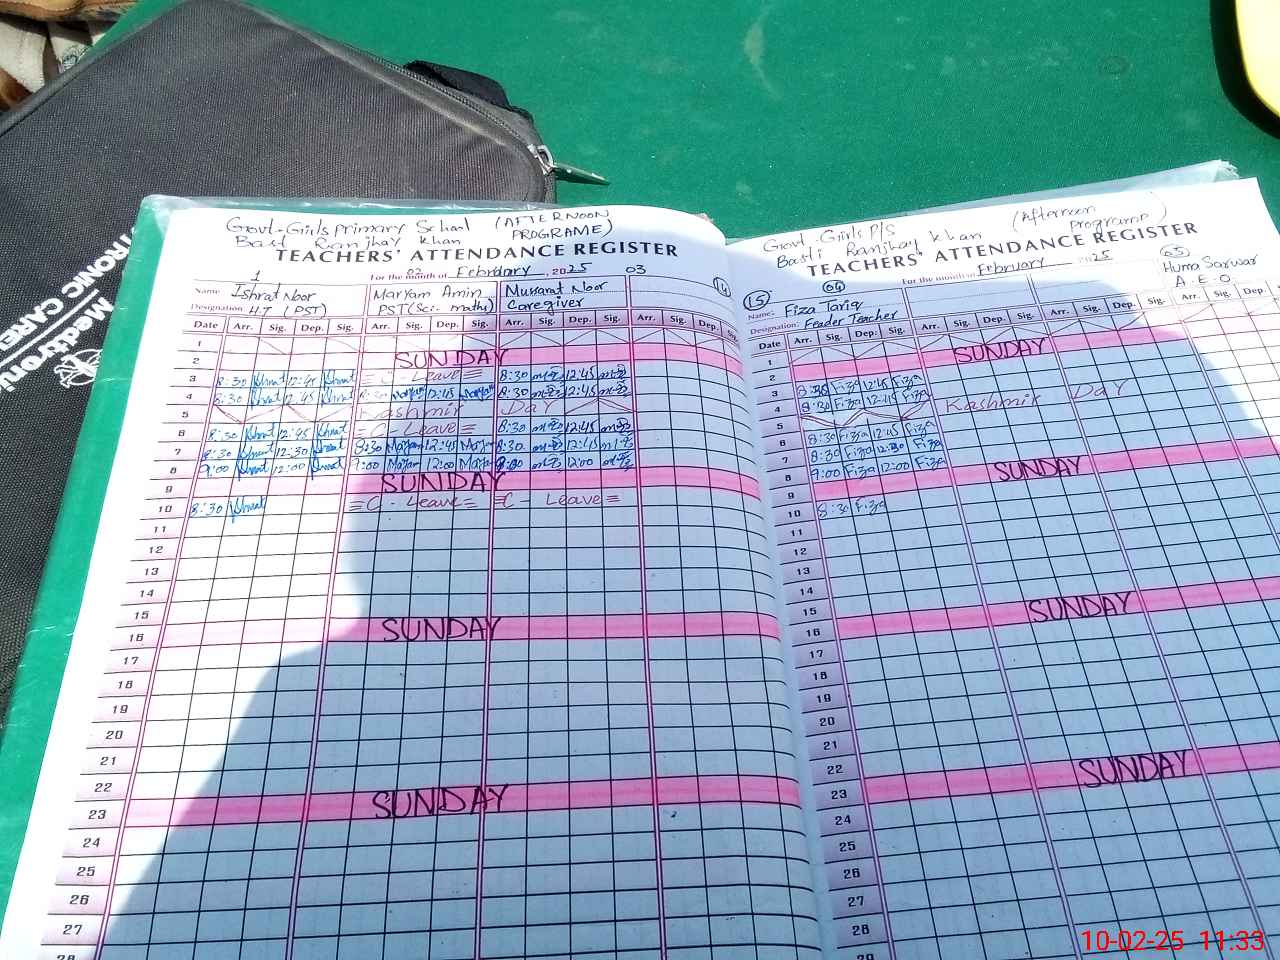 Govt. Girls Primary School (AFTERNOON
Basti Ranjhay Khan PROGRAME)
TEACHERS' ATTENDANCE REGISTER
For the month of 02 February, 2025
1 03 14
Name Ishrat Noor Maryam Amin Musarat Noor
Designation PST(Sci-math) Caregiver
Date Arr. Sig. Dep. Sig. Arr. Sig. Dep. Sig. Arr. Sig. Dep. Sig. Arr. Sig. Dep. Sig.
1
2 SUNDAY
3 8:30 Ishrat 12:45 Ishrat = C - Leave = 8:30 12:45
4 8:30 Ishrat 12:45 Ishrat 8:30 Maryam 12:45 Maryam 8:30 12:45
5 Kashmir Day
6 8:30 Ishrat 12:45 Ishrat = C - Leave = 8:30 12:45
7 8:30 Ishrat 12:30 Ishrat 8:30 Maryam 12:45 Maryam 8:30 12:45
8 9:00 Ishrat 12:00 Ishrat 9:00 Maryam 12:00 Maryam 12:00
9 SUNDAY
10 8:30 Ishrat = C - Leave = = C - Leave =
11
12
13
14
15
16 SUNDAY
17
18
19
20
21
22
23 SUNDAY
24
25
26
27
28
Govt. Girls P/S (Afternoon
Basti Ranjhay Khan Programe)
TEACHERS' ATTENDANCE REGISTER
For the month of February 2025
15 04 05
Name: Fiza Tariq Huma Sarwar
Designation: Feader Teacher A.E.O
Date Arr. Sig. Dep. Sig. Arr. Sig. Dep. Sig. Arr. Sig. Dep. Sig. Arr. Sig. Dep.
1
2 SUNDAY
3 8:30 Fiza 12:45 Fiza
4 8:30 Fiza 12:45 Fiza
5 Kashmir Day
6 8:30 Fiza 12:45 Fiza
7 8:30 Fiza 12:30 Fiza
8 9:00 Fiza 12:00 Fiza
9 SUNDAY
10 8:30 Fiza
11
12
13
14
15
16 SUNDAY
17
18
19
20
21
22
23 SUNDAY
24
25
26
27
28
29
Medtronic
10-02-25 11:33